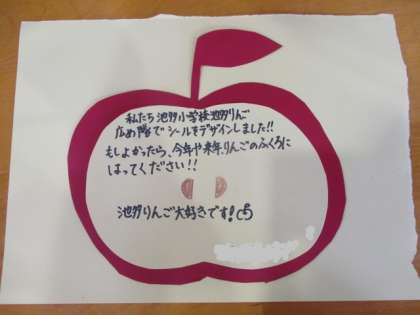 私たち池多小学校池多りんご
広め隊でシールをデザインしました!!
もしよかったら、今年や来年、りんごのふくろに
はってください!!
池多りんご大好きです!